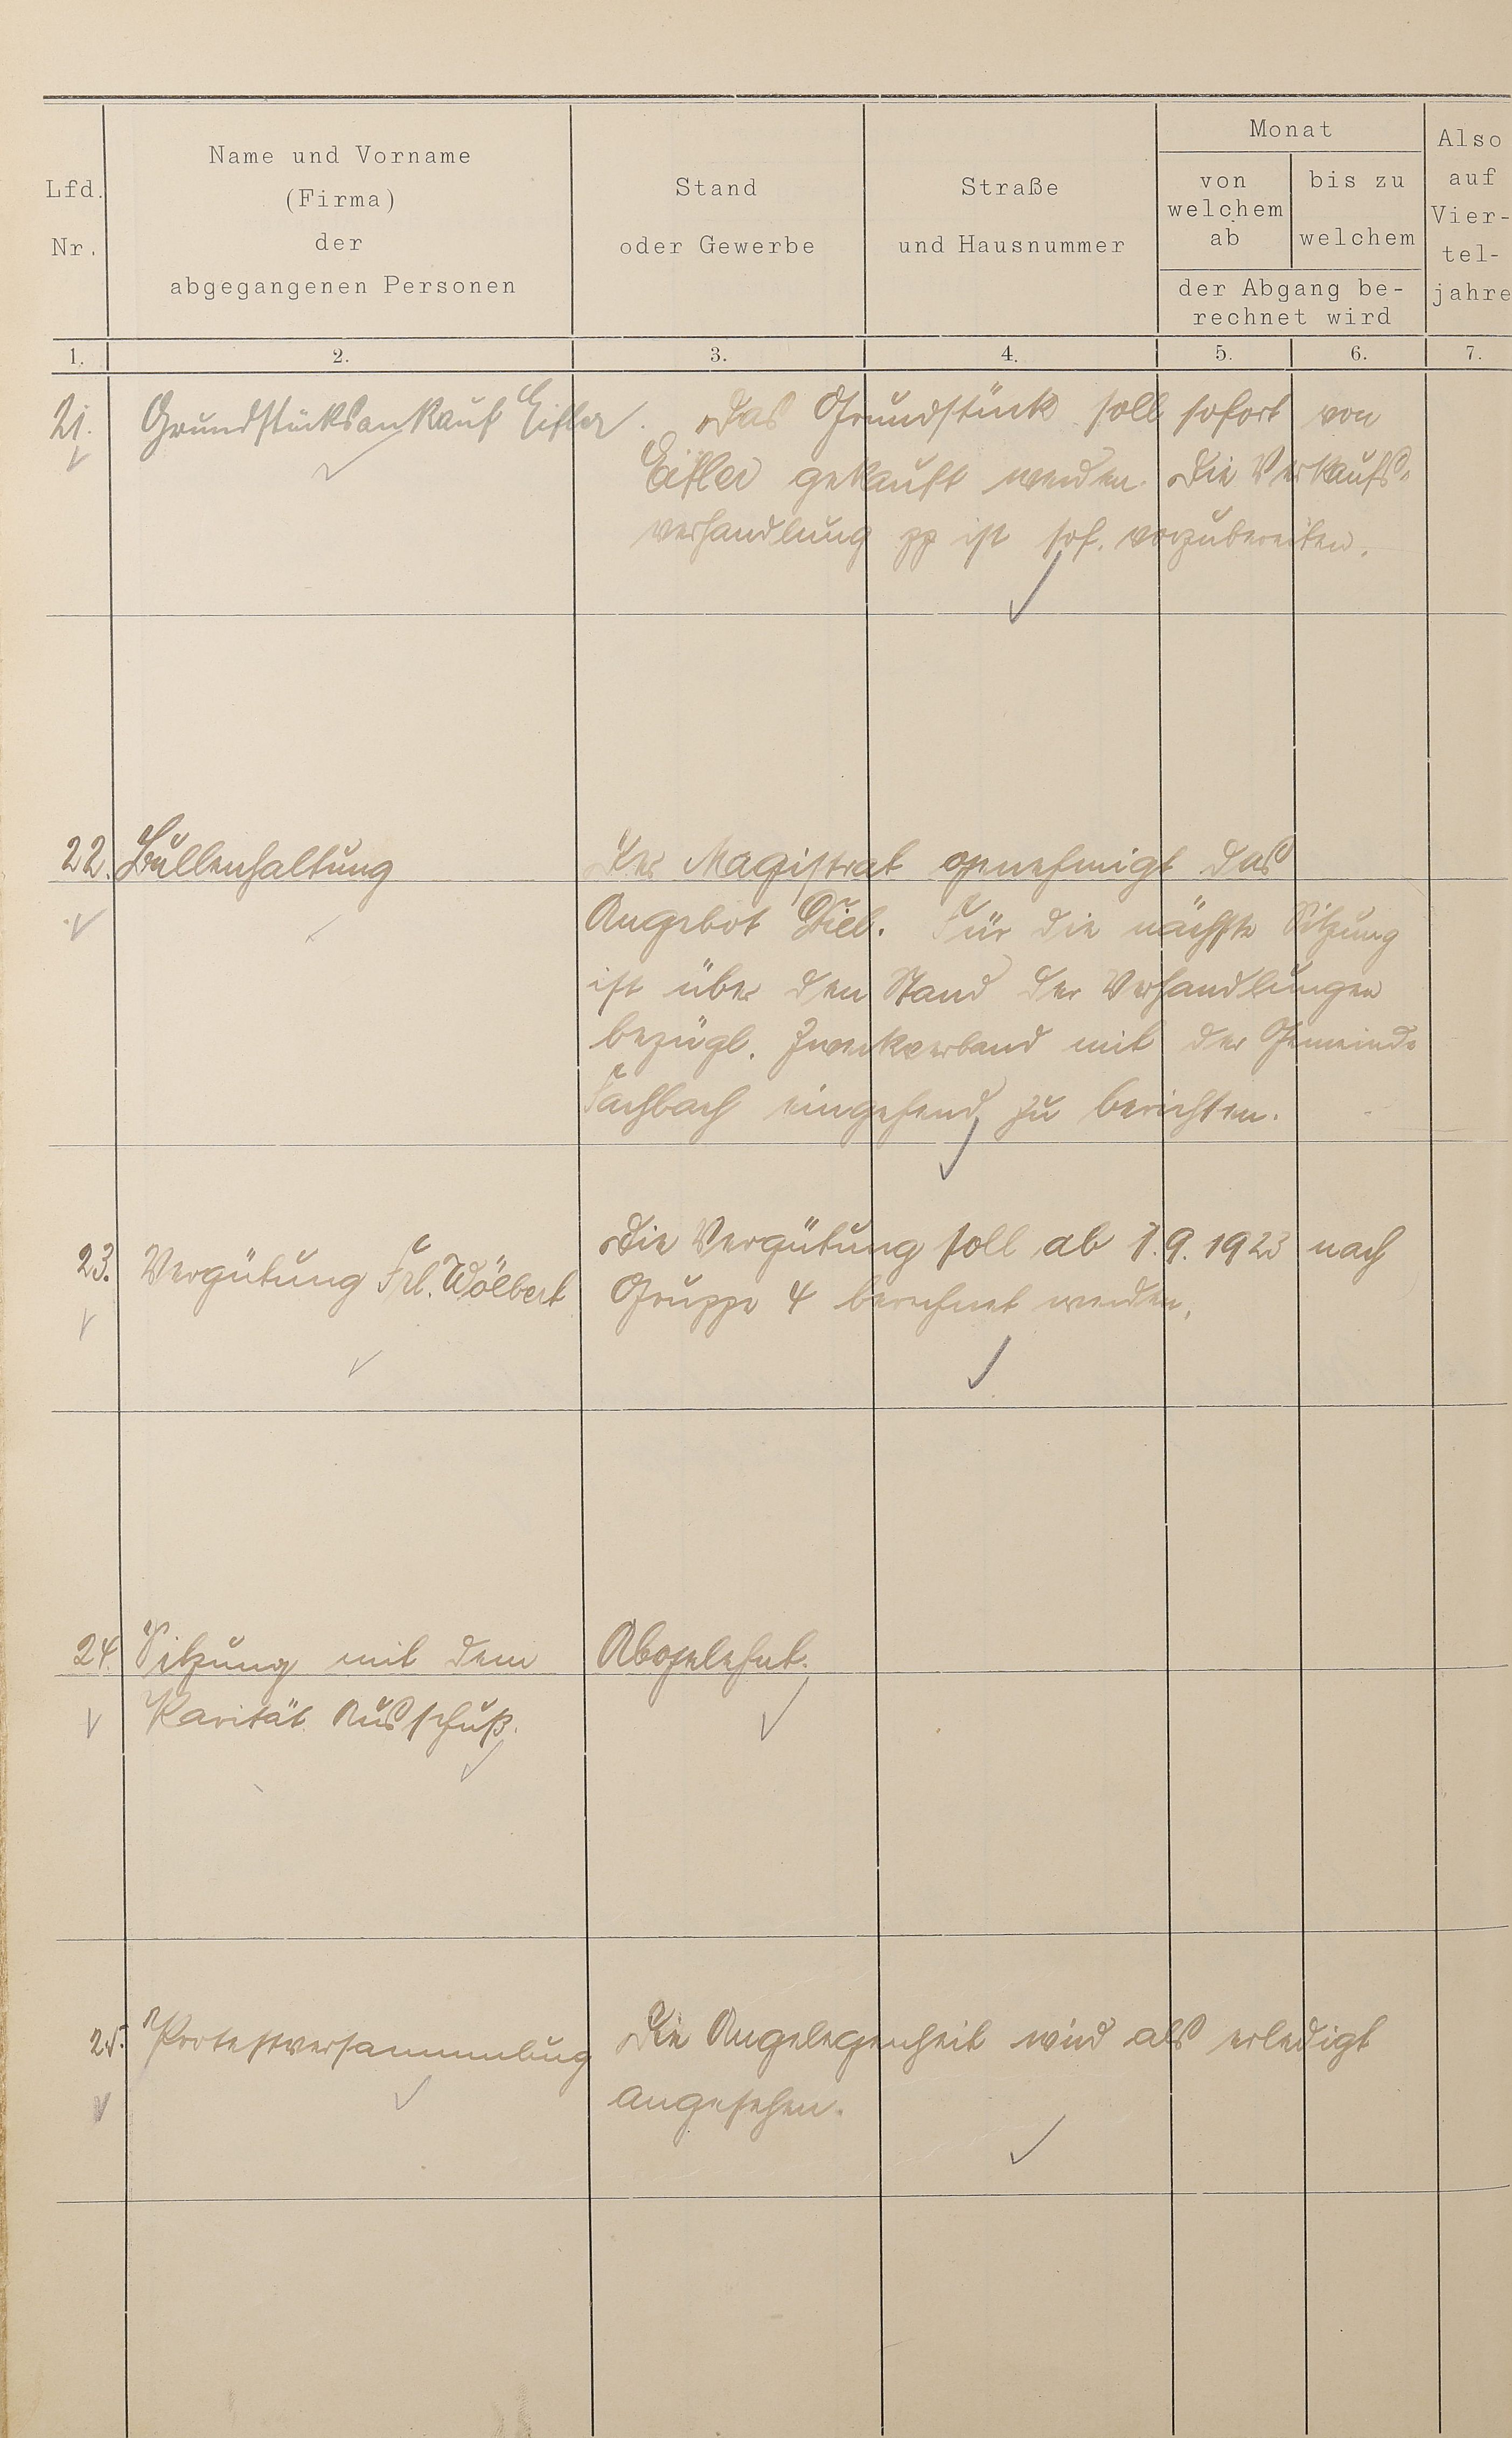 Lfd.
Nr.
Name und Vorname
(Firma)
der
abgegangenen Personen
Stand
oder Gewerbe
Straße
und Hausnummer
Monat
von
welchem
ab
bis zu
welchem
der Abgang be-
rechnet wird
Also
auf
Vier-
tel-
jahre
1. 2. 3. 4. 5. 6. 7.
21. Grundstücksankauf Eifler. Das Grundstück soll sofort von
Eifler gekauft werden. Die Verkaufs-
verhandlung pp ist sof. vorzubereiten.
22. Bullenhaltung Der Magistrat genehmigt das
Angebot Für die nächste Sitzung
ist über den Stand der Verhandlungen
bezügl. Zweckverband mit der Gemeinde
Fachbach eingehend zu berichten.
23. Vergütung Frl. Wölbert Die Vergütung soll ab 1.9.1923 nach
Gruppe 4 berechnet werden.
24. Sitzung mit dem Abgelehnt.
Parität. Ausschuß.
25. Protestversammlung Die Angelegenheit wird als erledigt
angesehen.